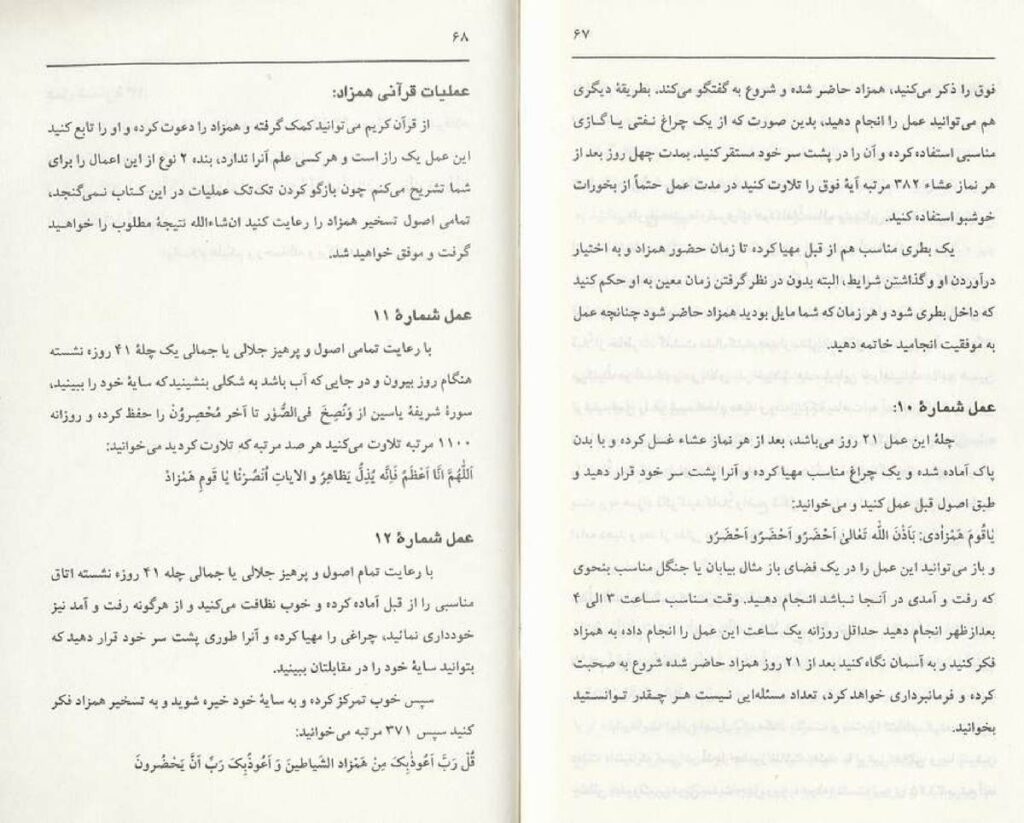 ۶۷
فوق را ذکر می‌کنید، همزاد حاضر شده و شروع به گفتگو می‌کند. بطریقهٔ دیگری
هم می‌توانید عمل را انجام دهید، بدین صورت که از یک چراغ نفتی یا گازی
مناسبی استفاده کرده و آن را در پشت سر خود مستقر کنید. بمدت چهل روز بعد از
هر نماز عشاء ۳۸۲ مرتبه آیهٔ فوق را تلاوت کنید در مدت عمل حتماً از بخورات
خوشبو استفاده کنید.
یک بطری مناسب هم از قبل مهیا کرده تا زمان حضور همزاد و به اختیار
درآوردن او و گذاشتن شرایط، البته بدون در نظر گرفتن زمان معین به او حکم کنید
که داخل بطری شود و هر زمان که شما مایل بودید همزاد حاضر شود چنانچه عمل
به موفقیت انجامید خاتمه دهید.
عمل شمارهٔ ۱۰:
چلهٔ این عمل ۲۱ روز می‌باشد، بعد از هر نماز عشاء غسل کرده و با بدن
پاک آماده شده و یک چراغ مناسب مهیا کرده و آنرا پشت سر خود قرار دهید و
طبق اصول قبل عمل کنید و می‌خوانید:
یٰاقُومَ هَمْزٰادی: بَاَذْنَ اللّٰه تَعٰالیٰ اَحْضَرُو اَحْضَرُو اَحْضَرُو
و باز می‌توانید این عمل را در یک فضای باز مثال بیابان یا جنگل مناسب بنحوی
که رفت و آمدی در آنجا نباشد انجام دهید. وقت مناسب ساعت ۳ الی ۴
بعدازظهر انجام دهید حداقل روزانه یک ساعت این عمل را انجام داده به همزاد
فکر کنید و به آسمان نگاه کنید بعد از ۲۱ روز همزاد حاضر شده شروع به صحبت
کرده و فرمانبرداری خواهد کرد، تعداد مسئله‌ایی نیست هر چقدر توانستید
بخوانید.
۶۸
عملیات قرآنی همزاد:
از قرآن کریم می‌توانید کمک گرفته و همزاد را دعوت کرده و او را تابع کنید
این عمل یک راز است و هر کسی علم آنرا ندارد، بنده ۲ نوع از این اعمال را برای
شما تشریح می‌کنم چون بازگو کردن تک‌تک عملیات در این کتاب نمی‌گنجد،
تمامی اصول تسخیر همزاد را رعایت کنید ان‌شاءالله نتیجهٔ مطلوب را خواهید
گرفت و موفق خواهید شد.
عمل شمارهٔ ۱۱
با رعایت تمامی اصول و پرهیز جلالی یا جمالی یک چلهٔ ۴۱ روزه نشسته
هنگام روز بیرون و در جایی که آب باشد به شکلی بنشینید که سایهٔ خود را ببینید،
سورهٔ شریفهٔ یاسین از وَنُصِخَ فی‌الصُّوْر تا آخر مُحْصِروُن را حفظ کرده و روزانه
۱۱۰۰ مرتبه تلاوت می‌کنید هر صد مرتبه که تلاوت کردید می‌خوانید:
اَللّٰهُمَّ اَنَّا اَعْظَمُ فَاِنَّه یُذِلُّ یَظاهِرُ و الایاتِ اُنصُرْنٰا یٰا قَومِ هَمْزٰادْ
عمل شمارهٔ ۱۲
با رعایت تمام اصول و پرهیز جلالی یا جمالی چله ۴۱ روزه نشسته اتاق
مناسبی را از قبل آماده کرده و خوب نظافت می‌کنید و از هرگونه رفت و آمد نیز
خودداری نمائید، چراغی را مهیا کرده و آنرا طوری پشت سر خود قرار دهید که
بتوانید سایهٔ خود را در مقابلتان ببینید.
سپس خوب تمرکز کرده و به سایهٔ خود خیره شوید و به تسخیر همزاد فکر
کنید سپس ۳۷۱ مرتبه می‌خوانید:
قُل رَبَّ اَعُوذُبِکَ مِنْ هَمْزاد الشیاطینَ وَ اَعُوذُبِکَ رَبِّ اَنَّ یَحْضُرونَ